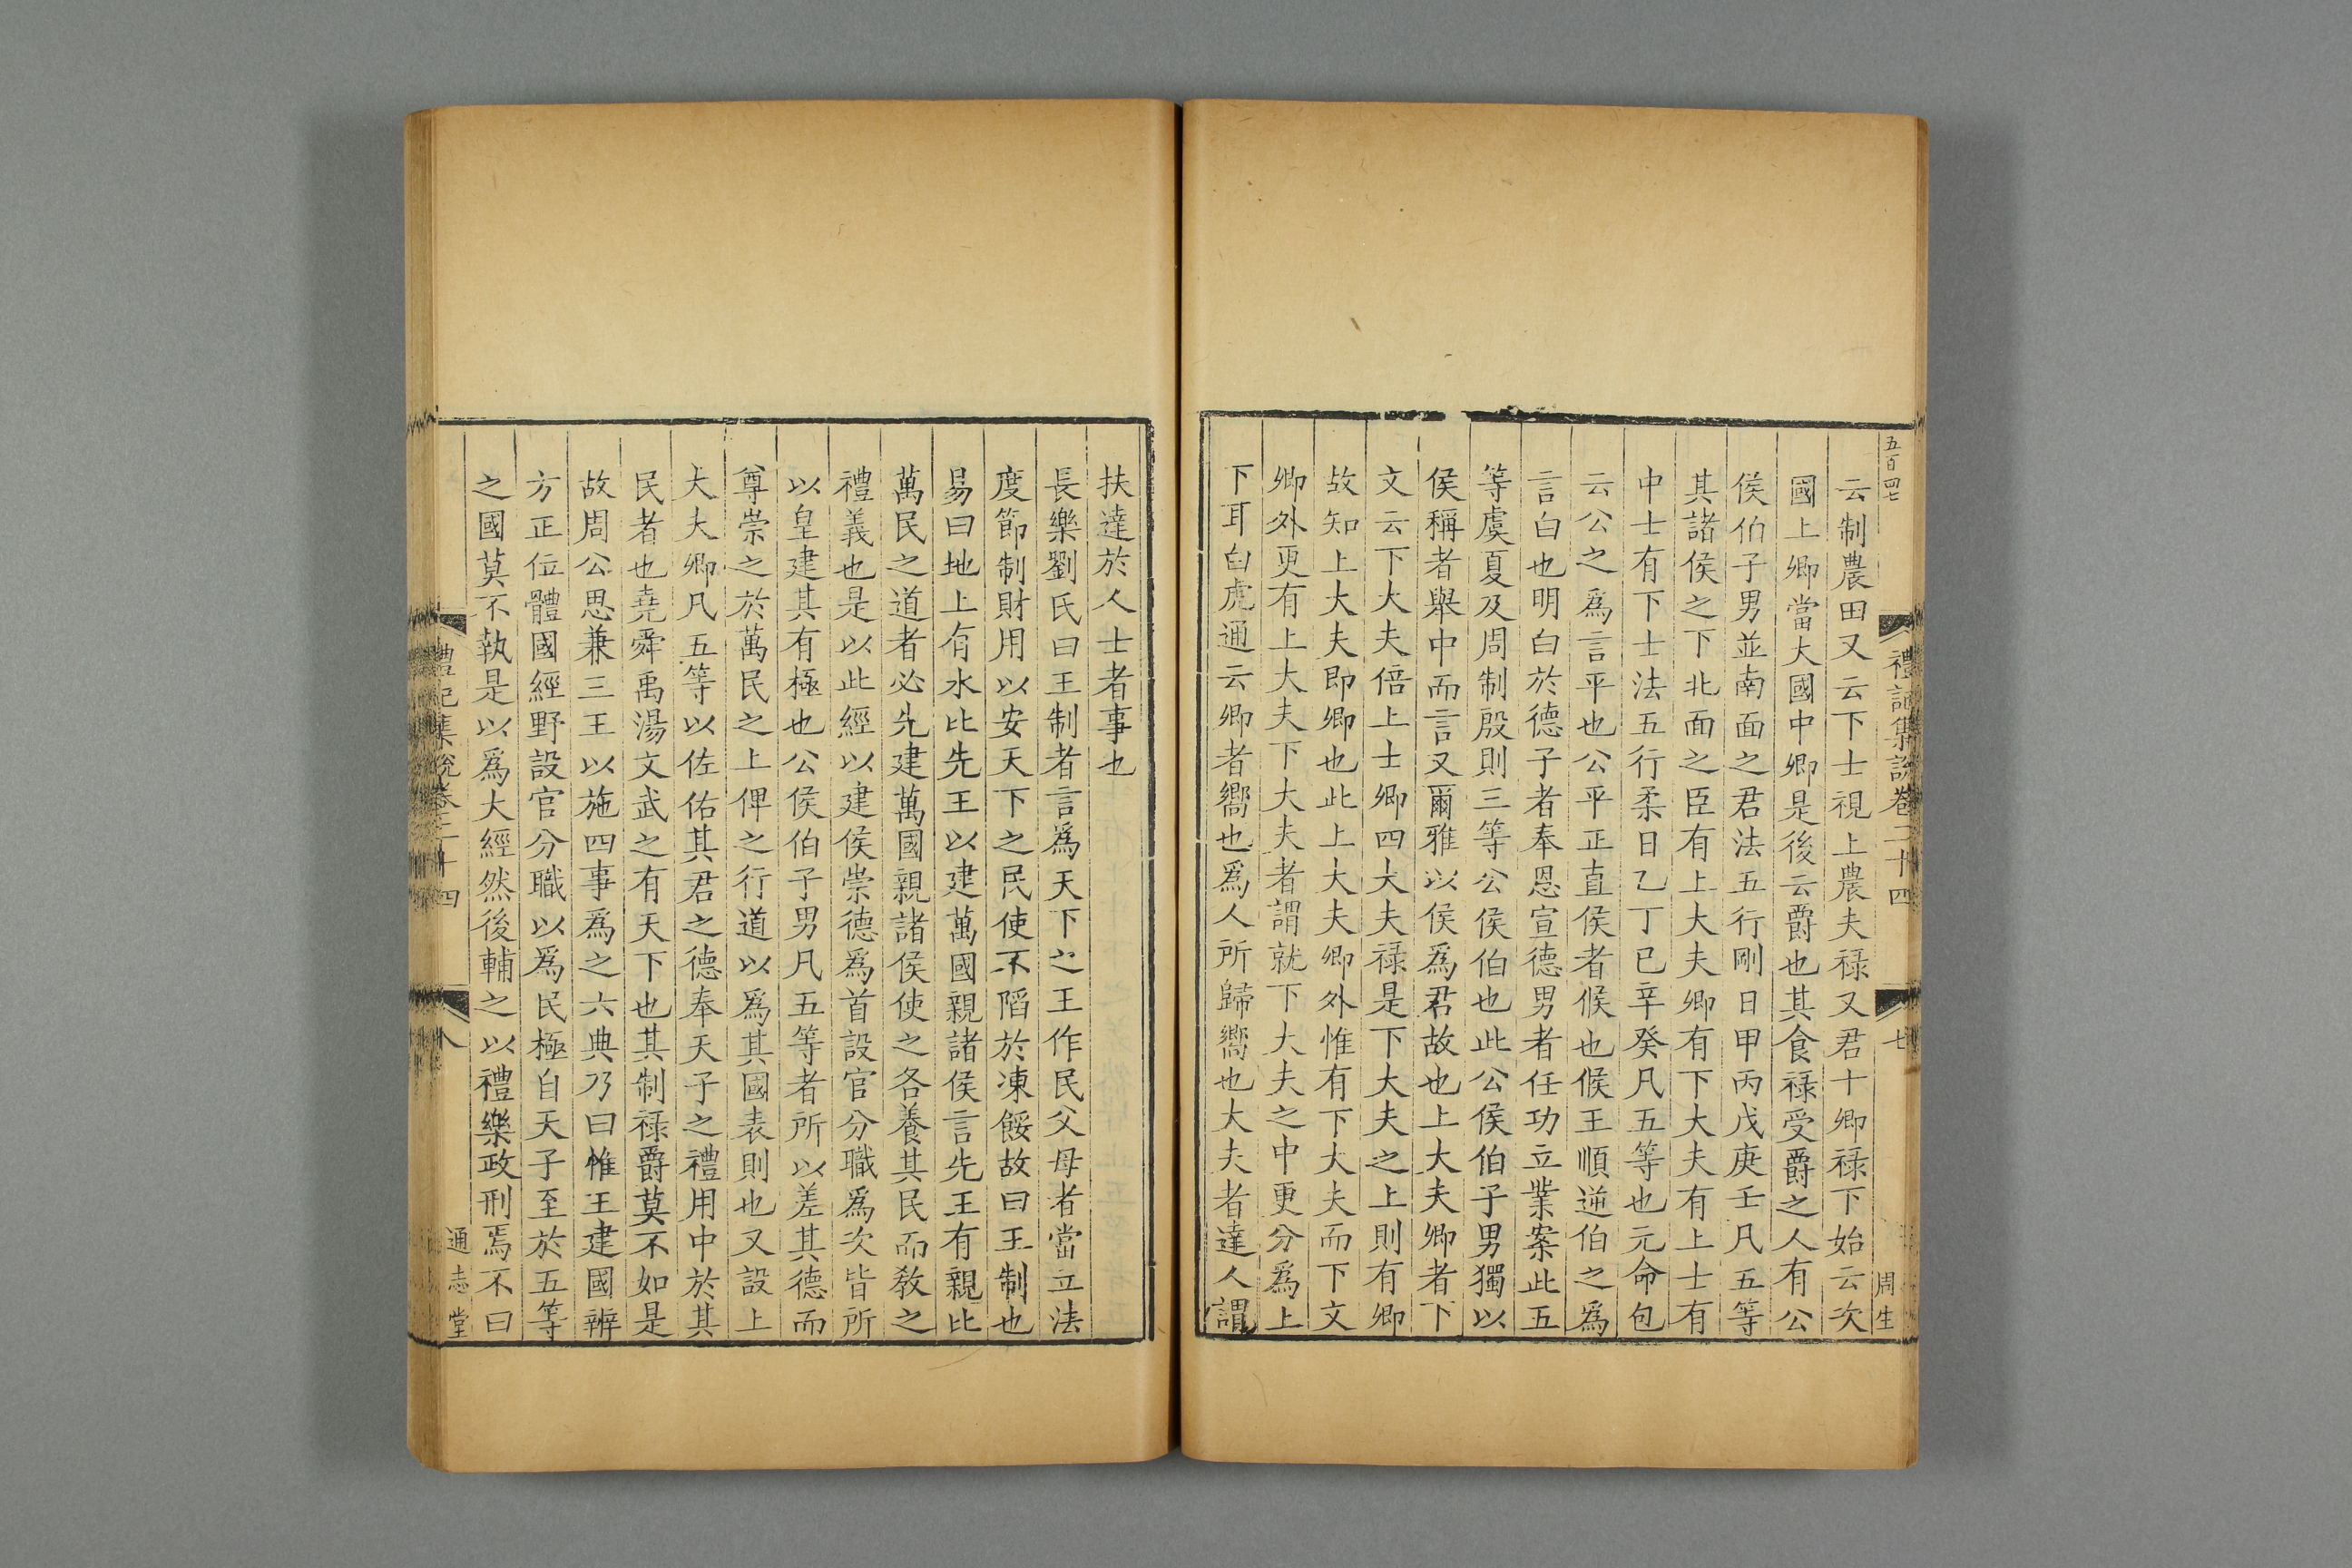 五百四七
禮記集說卷二十四
七
周生
云制農田又云下士視上農夫祿又君十卿祿下始云次
國上卿當大國中卿是後云爵也其食祿受爵之人有公
侯伯子男並南面之君法五行剛日甲丙戊庚壬凡五等
其諸侯之下北面之臣有上大夫卿有下大夫有上士有
中士有下士法五行柔日乙丁已辛癸凡五等也元命包
云公之爲言平也公平正直侯者候也候王順逆伯之爲
言白也明白於德子者奉恩宣德男者任功立業案此五
等虞夏及周制殷則三等公侯伯也此公侯伯子男獨以
侯稱者舉中而言又爾雅以侯爲君故也上大夫卿者下
文云下大夫倍上士卿四大夫祿是下大夫之上則有卿
故知上大夫即卿也此上大夫卿外惟有下大夫而下文
卿外更有上大夫下大夫者謂就下大夫之中更分爲上
下耳白虎通云卿者嚮也爲人所歸嚮也大夫者達人謂
扶達於人士者事也
長樂劉氏曰王制者言爲天下之王作民父母者當立法
度節制財用以安天下之民使不陷於凍餒故曰王制也
易曰地上有水比先王以建萬國親諸侯言先王有親比
萬民之道者必先建萬國親諸侯使之各養其民而敎之
禮義也是以此經以建侯崇德爲首設官分職爲次皆所
以皇建其有極也公侯伯子男凡五等者所以差其德而
尊崇之於萬民之上俾之行道以爲其國表則也又設上
大夫卿凡五等以佐佑其君之德奉天子之禮用中於其
民者也堯舜禹湯文武之有天下也其制祿爵莫不如是
故周公思兼三王以施四事爲之六典乃曰惟王建國辨
方正位體國經野設官分職以爲民極自天子至於五等
之國莫不執是以爲大經然後輔之以禮樂政刑焉不曰
禮記集說卷二十四
八
通志堂